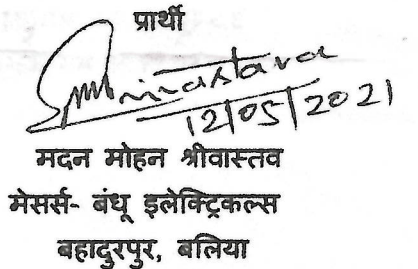 प्रार्थी
Srivastava
12/05/2021
मदन मोहन श्रीवास्तव
मेसर्स- बंधू इलेक्ट्रिकल्स
बहादुरपुर, बलिया